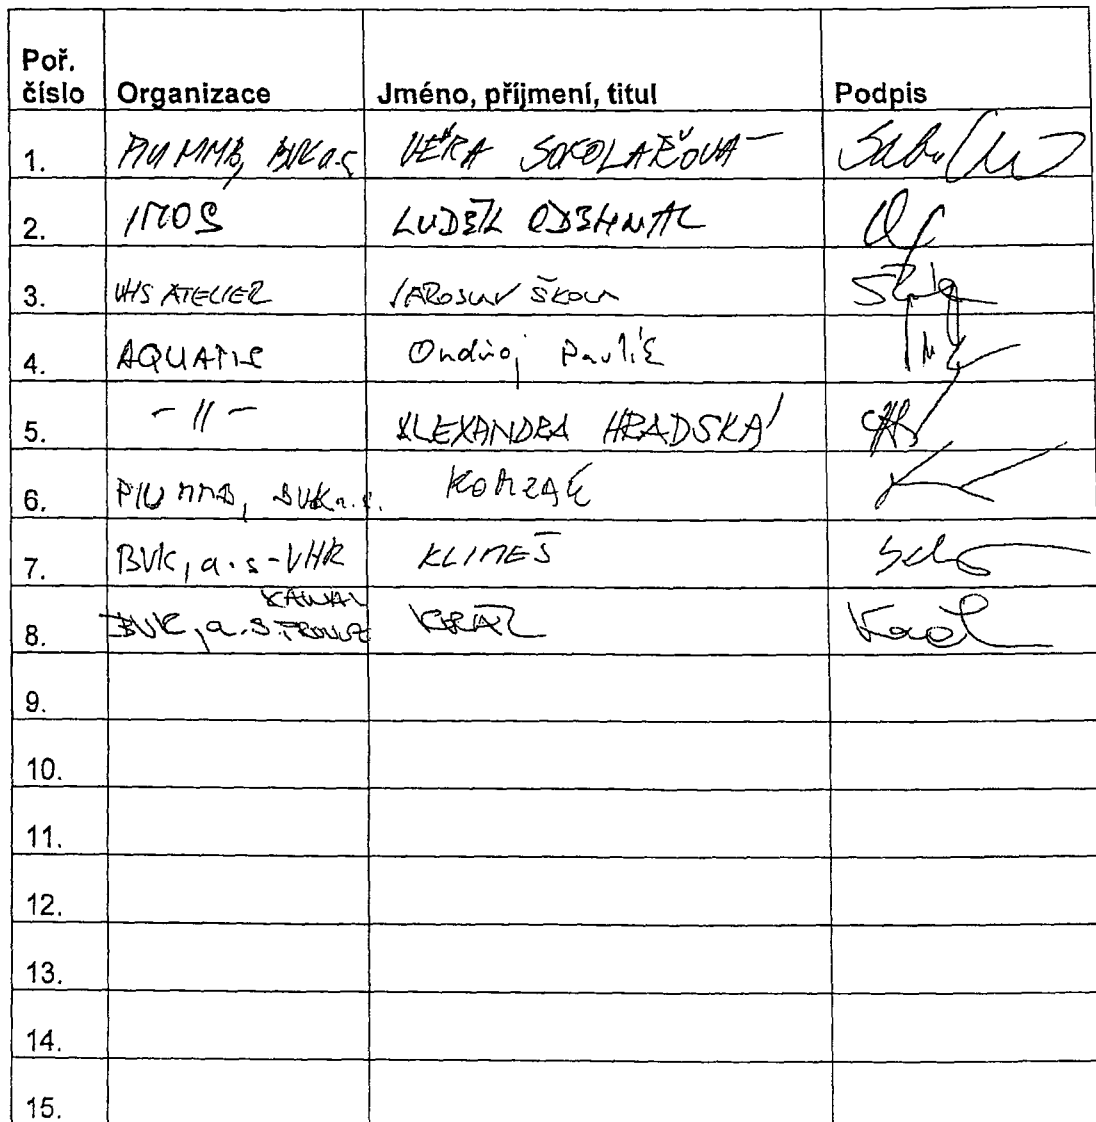 Poř.
číslo Organizace Jméno, příjmení, titul Podpis
1. PIU MMB, BVK a.s. VĚRA SOKOLÁŘOVÁ
2. IMOS LUDĚK ODEHNAL
3. VHS ATELIER JAROSLAV ŠKODA
4. AQUATIS Ondřej Pavlík
5. - // - ALEXANDRA HRADSKÁ
6. PIU MMB, BVK a.s.
7. BVK, a.s-VHR KLIMEŠ
KANAL
8. BVK, a.s. PROVOZ KRÁL Král
9.
10.
11.
12.
13.
14.
15.